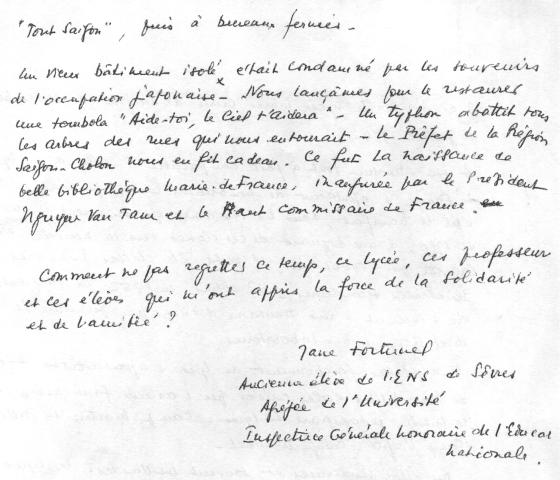 "Tout Saïgon", puis à bureaux fermés.
Un vieux bâtiment isolé était condamné par les souvenirs
de l'occupation japonaise. Nous lançâmes pour le restaurer
une tombola "Aide-toi, le Ciel t'aidera". Un typhon abattit tous
les arbres des rues qui nous entourait - le Préfet de la Région
Saïgon-Cholon nous en fit cadeau. Ce fut la naissance de
belle bibliothèque Marie-de-France, inaugurée par le Président
Nguyen Van Tam et le Haut Commissaire de France.
Comment ne pas regretter ce temps, ce lycée, ces professeur
et ces élèves qui m'ont appris la force de la solidarité
et de l'amitié ?
Jane Fortunel
Ancienne élève de l'ENS de Sèvres
Agrégée de l'Université
Inspectrice Générale honoraire de l'Educat
nationale.